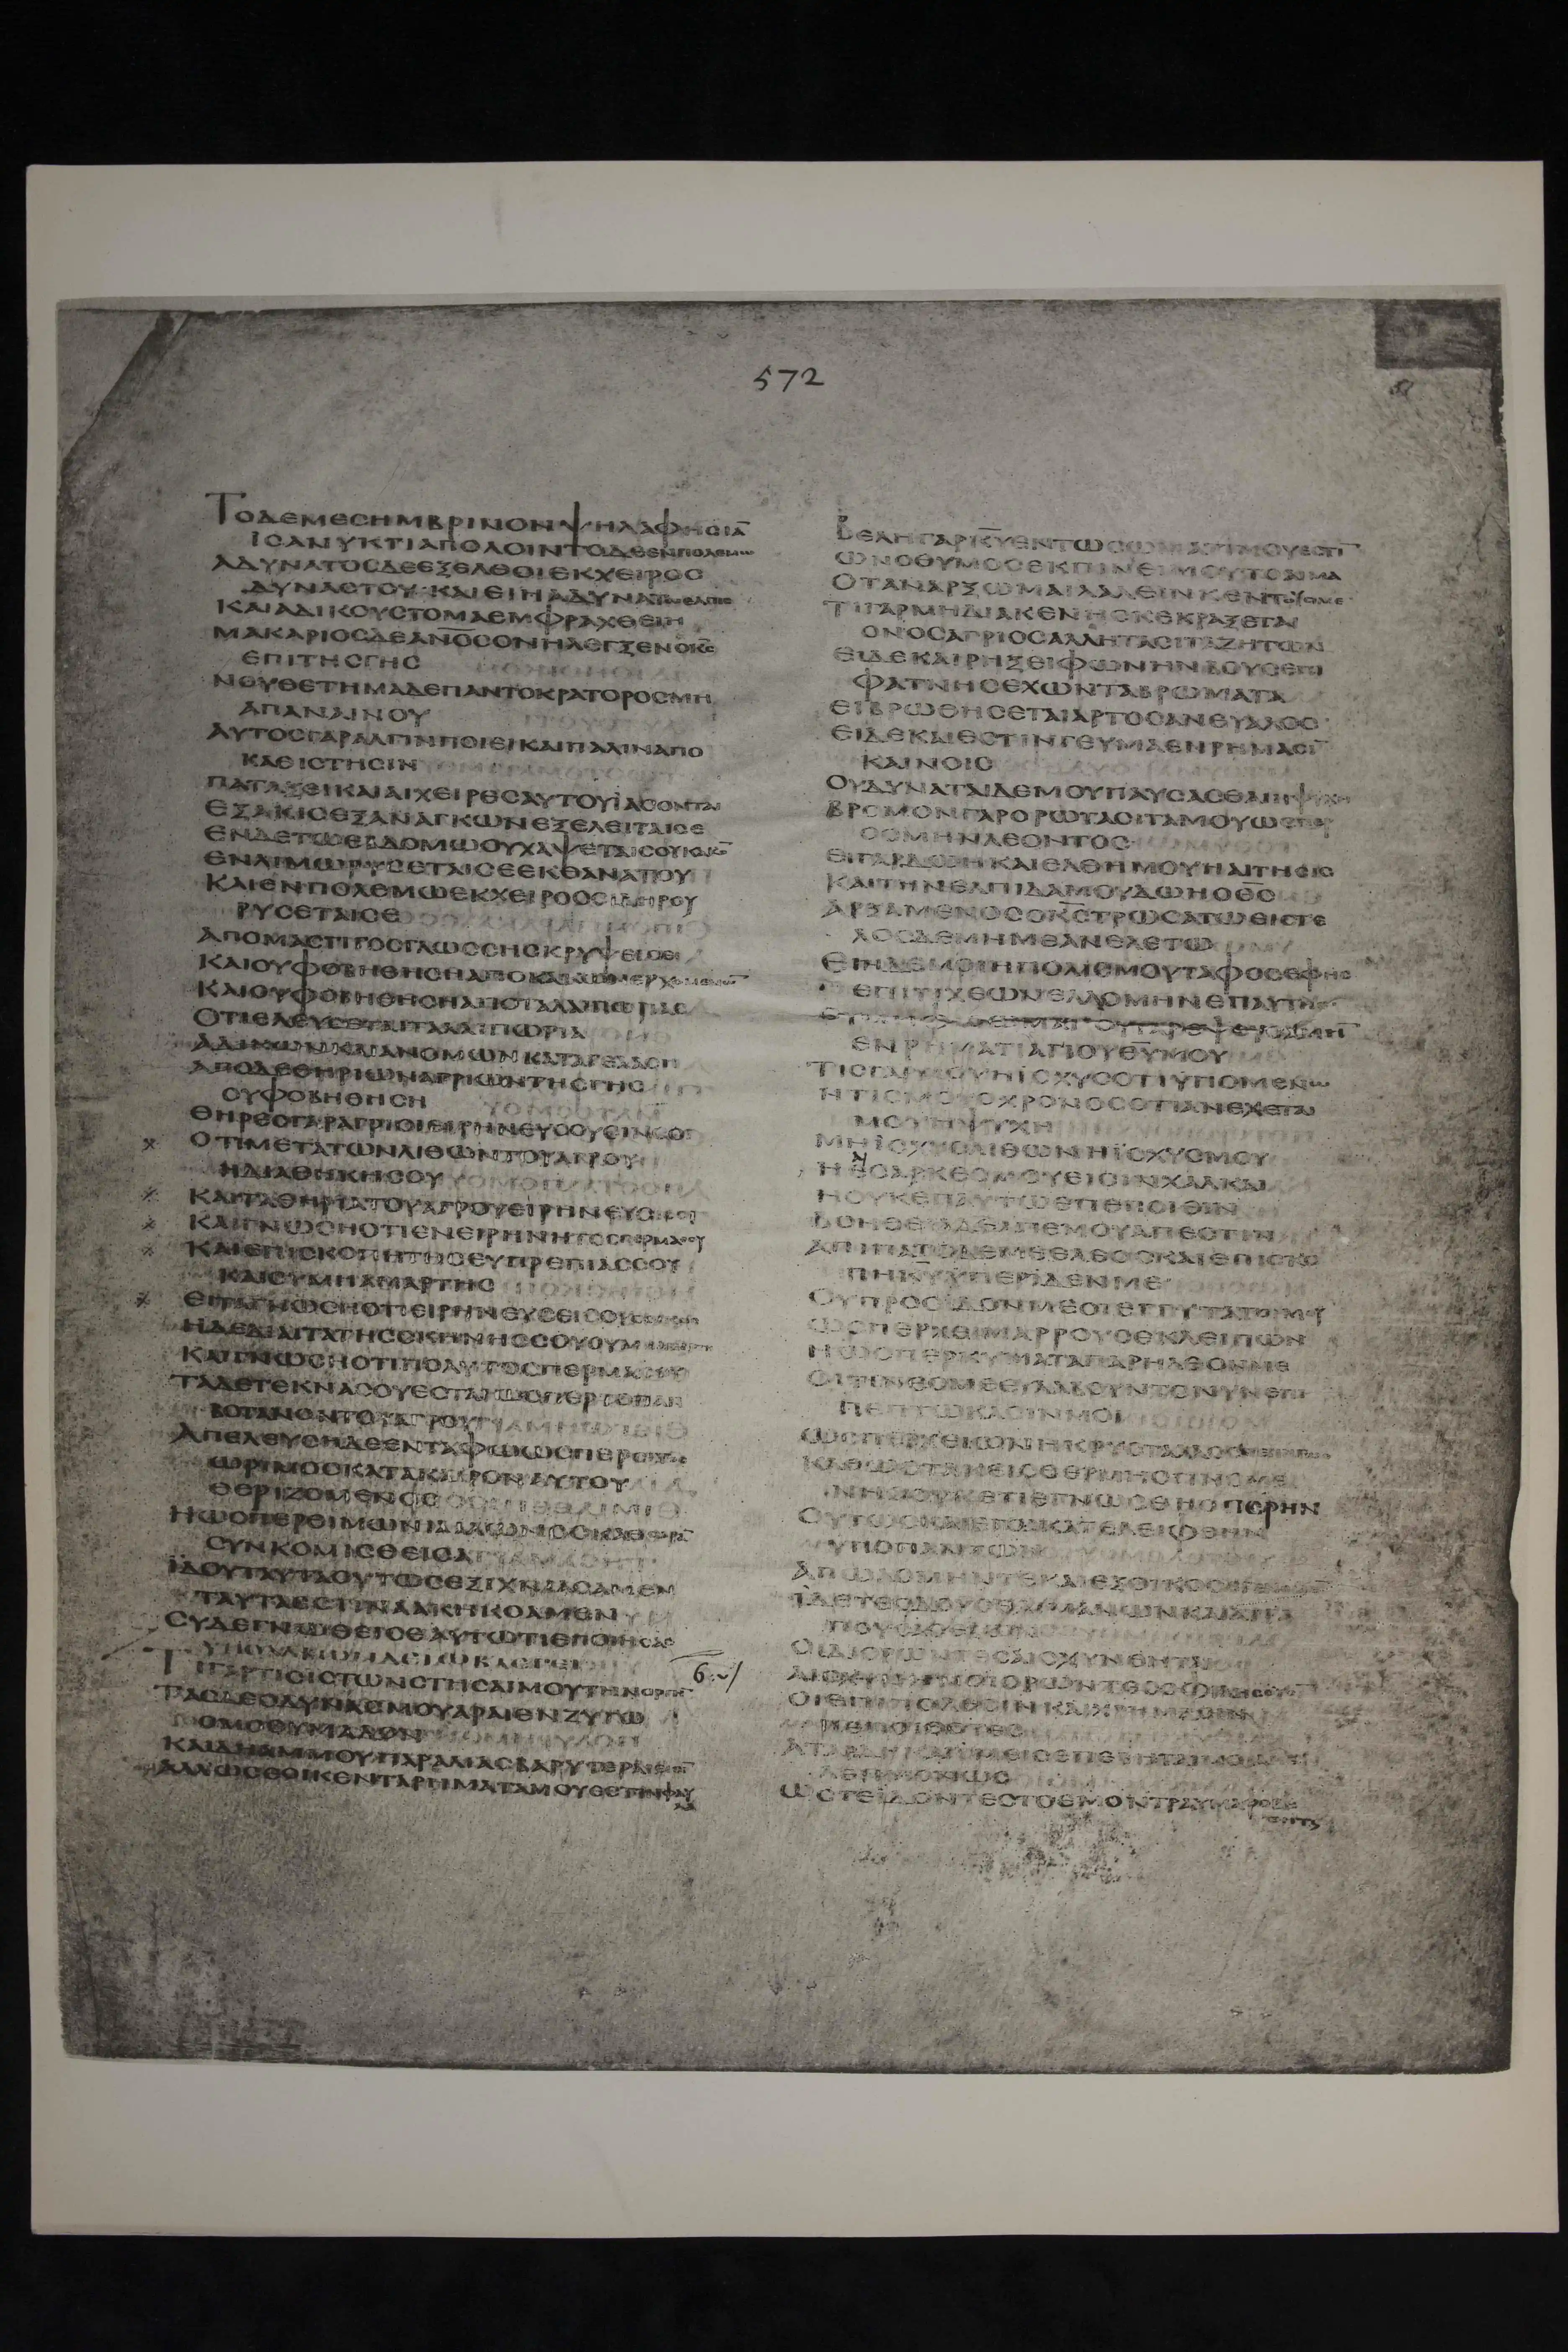 572
ΤΟΔΕΜΕCΗΜΒΡΙΝΟΝΨΗΛΑΦΗCΙΑ̅
ΙCΑΝΥΚΤΙΑΠΟΛΟΙΝΤΟΔΕΕΝΠΟΛΕΜΩ
ΑΔΥΝΑΤΟCΔΕΕΞΕΛΘΟΙΕΚΧΕΙΡΟC
ΔΥΝΑCΤΟΥ·ΚΑΙΕΙΗΑΔΥΝΑΤΩΕΛΠΙC
ΚΑΙΑΔΙΚΟΥCΤΟΜΑΕΜΦΡΑΧΘΕΙΗ
ΜΑΚΑΡΙΟCΔΕΑΝ̅Ο̅C̅ΟΝΗΛΕΓΞΕΝΟΚ̅C̅
ΕΠΙΤΗCΓΗC
ΝΟΥΘΕΤΗΜΑΔΕΠΑΝΤΟΚΡΑΤΟΡΟCΜΗ
ΑΠΑΝΑΙΝΟΥ
ΑΥΤΟCΓΑΡΑΛΓΙΝΠΟΙΕΙΚΑΙΠΑΛΙΝΑΠΟ
ΚΑΘΙCΤΗCΙΝ
ΠΑΤΑΞΕΙΚΑΙΑΙΧΕΙΡΕCΑΥΤΟΥΪΑCΟΝΤΑΙ
ΕΞΑΚΙCΕΞΑΝΑΓΚΩΝΕΞΕΛΕΙΤΑΙCΕ
ΕΝΔΕΤΩΕΒΔΟΜΩΟΥΧΑΨΕΤΑΙCΟΥΚΑΚΟ̅
ΕΝΛΙΜΩΡΥCΕΤΑΙCΕΕΚΘΑΝΑΤΟΥ
ΚΑΙΕΝΠΟΛΕΜΩΕΚΧΕΙΡΟCCΙΔΗΡΟΥ
ΡΥCΕΤΑΙCΕ
ΑΠΟΜΑCΤΙΓΟCΓΛΩCCΗCΚΡΥΨΕΙCΕ
ΚΑΙΟΥΦΟΒΗΘΗCΗΑΠΟΚΑΚΩΝΕΡΧΟΜΕΝΩ̅
ΚΑΙΟΥΦΟΒΗΘΗCΗΑΠΟΤΑΛΑΙΠΩΡΙΑC
ΟΤΙΕΛΕΥCΕΤΑΙΤΑΛΑΙΠΩΡΙΑ
ΑΔΙΚΩΝΚΑΙΑΝΟΜΩΝΚΑΤΑΓΕΛΑCΗ
ΑΠΟΔΕΘΗΡΙΩΝΑΓΡΙΩΝΤΗCΓΗC
ΟΥΦΟΒΗΘΗCΗ
ΘΗΡΕCΓΑΡΑΓΡΙΟΙΕΙΡΗΝΕΥCΟΥCΙΝCΟΙ
ΟΤΙΜΕΤΑΤΩΝΛΙΘΩΝΤΟΥΑΓΡΟΥ
ΗΔΙΑΘΗΚΗCΟΥ
ΚΑΙΤΑΘΗΡΙΑΤΟΥΑΓΡΟΥΕΙΡΗΝΕΥCΕΙCΟΙ
ΚΑΙΓΝΩCΗΟΤΙΕΝΕΙΡΗΝΗΤΟCΠΕΡΜΑCΟΥ
ΚΑΙΕΠΙCΚΟΠΗΤΗCΕΥΠΡΕΠΙΑCCΟΥ
ΚΑΙΟΥΜΗΑΜΑΡΤΗC
ΕΙΤΑΓΝΩCΗΟΤΙΕΙΡΗΝΕΥCΕΙCΟΥ
ΗΔΕΔΙΑΙΤΑΤΗCCΚΗΝΗCCΟΥΟΥΜΗ
ΚΑΙΓΝΩCΗΟΤΙΠΟΛΥΤΟCΠΕΡΜΑCΟΥ
ΤΑΔΕΤΕΚΝΑCΟΥΕCΤΑΙΩCΠΕΡΤΟΠΑΝ
ΒΟΤΑΝΟΝΤΟΥΑΓΡΟΥ
ΑΠΕΛΕΥCΗΔΕΕΝΤΑΦΩΩCΠΕΡCΙΤΟC
ΩΡΙΜΟCΚΑΤΑΚΑΙΡΟΝΑΥΤΟΥ
ΘΕΡΙΖΟΜΕΝΟC
ΗΩCΠΕΡΘΙΜΩΝΙΑΑΛΩΝΟCΚΑΘΩΡΑ̅
CΥΝΚΟΜΙCΘΕΙCΑ
ΪΔΟΥΤΑΥΤΑΟΥΤΩCΕΞΙΧΝΙΑCΑΜΕΝ
ΤΑΥΤΑΕCΤΙΝΑΑΚΗΚΟΑΜΕΝ
CΥΔΕΓΝΩΘΙCΕΑΥΤΩΤΙΕΠΟΙΗCΑC
ΥΠΟΛΑΒΩΝΔΕΙΩΒΛΕΓΕΙ
ΕΙΓΑΡΤΙCΙCΤΩΝCΤΗCΑΙΜΟΥΤΗΝΟΡΓΗ̅
ΤΑCΔΕΟΔΥΝΑCΜΟΥΑΡΑΙΕΝΖΥΓΩ
ΟΜΟΘΥΜΑΔΟΝ
ΚΑΙΔΗΑΜΜΟΥΠΑΡΑΛΙΑCΒΑΡΥΤΕΡΑΕCΤΑΙ
ΒΕΛΗΓΑΡΚ̅Υ̅ΕΝΤΩCΩΜΑΤΙΜΟΥΕCΤΙ̅
ΩΝΟΘΥΜΟCΕΚΠΙΝΕΙΜΟΥΤΟΑΙΜΑ
ΟΤΑΝΑΡΞΩΜΑΙΛΑΛΕΙΝΚΕΝΤΟΥCΙΜΕ
ΤΙΓΑΡΜΗΔΙΑΚΕΝΗCΚΕΚΡΑΞΕΤΑΙ
ΟΝΟCΑΓΡΙΟCΑΛΛΗΤΑCΙΤΑΖΗΤΩΝ
ΕΙΔΕΚΑΙΡΗΞΕΙΦΩΝΗΝΒΟΥCΕΠΙ
ΦΑΤΝΗCΕΧΩΝΤΑΒΡΩΜΑΤΑ
ΕΙΒΡΩΘΗCΕΤΑΙΑΡΤΟCΑΝΕΥΑΛΟC
ΕΙΔΕΚΑΙΕCΤΙΝΓΕΥΜΑΕΝΡΗΜΑCΙ̅
ΚΑΙΝΟΙC
ΟΥΔΥΝΑΤΑΙΔΕΜΟΥΠΑΥCΑCΘΑΙΗΨΥΧΗ
ΒΡΟΜΟΝΓΑΡΟΡΩΤΑCΙΤΑΜΟΥΩCΠΕΡ
ΟCΜΗΝΛΕΟΝΤΟC
ΕΙΓΑΡΔΩΗΚΑΙΕΛΘΗΜΟΥΗΑΙΤΗCΙC
ΚΑΙΤΗΝΕΛΠΙΔΑΜΟΥΔΩΗΟΘ̅C̅
ΑΡΞΑΜΕΝΟCΟΚ̅C̅ΤΡΩCΑΤΩΕΙCΤΕ
ΛΟCΔΕΜΗΜΕΑΝΕΛΕΤΩ
ΕΙΗΔΕΜΟΙΗΠΟΛΙCΜΟΥΤΑΦΟCΕΦΗC
ΕΠΙΤΙΧΕΩΝΕΛΛΟΜΗΝΕΠΑΥΤΗC
ΕΝΡΗΜΑΤΙΑΓΙΟΥΘ̅Υ̅ΜΟΥ
ΤΙCΓΑΡΜΟΥΗΪCΧΥCΟΤΙΫΠΟΜΕΝΩ
ΗΤΙCΜΟΥΟΧΡΟΝΟCΟΤΙΑΝΕΧΕΤΑΙ
ΜΟΥΗΨΥΧΗ
ΜΗΪCΧΥCΛΙΘΩΝΗΪCΧΥCΜΟΥ
ΗΑΙCΑΡΚΕCΜΟΥΕΙCΙΝΧΑΛΚΑΙ
ΗΟΥΚΕΠΑΥΤΩΕΠΕΠΟΙΘΙΝ
ΒΟΗΘΕΙΑΔΕΑΠΕΜΟΥΑΠΕCΤΙΝ
ΑΠΙΠΑΤΟΔΕΜΕΕΛΕΟCΚΑΙΕΠΙCΚΟ
ΠΗΚ̅Υ̅ΫΠΕΡΙΔΕΝΜΕ
ΟΥΠΡΟCΙΔΟΝΜΕΟΙΕΓΓΥΤΑΤΟΙΜΟΥ
ΩCΠΕΡΧΕΙΜΑΡΡΟΥCΕΚΛΕΙΠΩΝ
ΗΩCΠΕΡΚΥΜΑΤΑΠΑΡΗΛΘΟΝΜΕ
ΟΙΤΙΝΕCΜΕΕΥΛΑΒΟΥΝΤΟΝΥΝΕΠΙ
ΠΕΠΤΩΚΑCΙΝΜΟΙ
ΩCΠΕΡΧΕΙΩΝΗΚΡΥCΤΑΛΛΟC
ΚΑΘΩCΤΑΚΕΙCΘΕΡΜΗCΓΙΝΟΜΕ
ΝΗCΟΥΚΕΤΙΕΓΝΩCΘΗΟΠΕΡΗΝ
ΟΥΤΩCΚΑΙΕΓΩΚΑΤΕΛΕΙΦΘΗΝ
ΥΠΟΠΑΝΤΩΝ
ΑΠΩΛΟΜΗΝΤΕΚΑΙΕΞΟΙΚΟC
ΪΔΕΤΕΟΔΟΥCΘΑΙΜΑΝΩΝΚΑΙΑΤΡΑ
ΠΟΥCCΑΒΩΝ
ΟΙΔΙΟΡΩΝΤΕCΑΙCΧΥΝΘΗΤΕ
ΟΙΕΠΙΠΟΛΕCΙΝΚΑΙΧΡΗΜΑCΙΝ
ΠΕΠΟΙΘΟΤΕC
ΛΕΗΜΟΝΩC
ΩCΤΕΪΔΟΝΤΕCΤΟΕΜΟΝΤΡΑΥΜΑΦΟΒΗ
ΘΗΤΕ